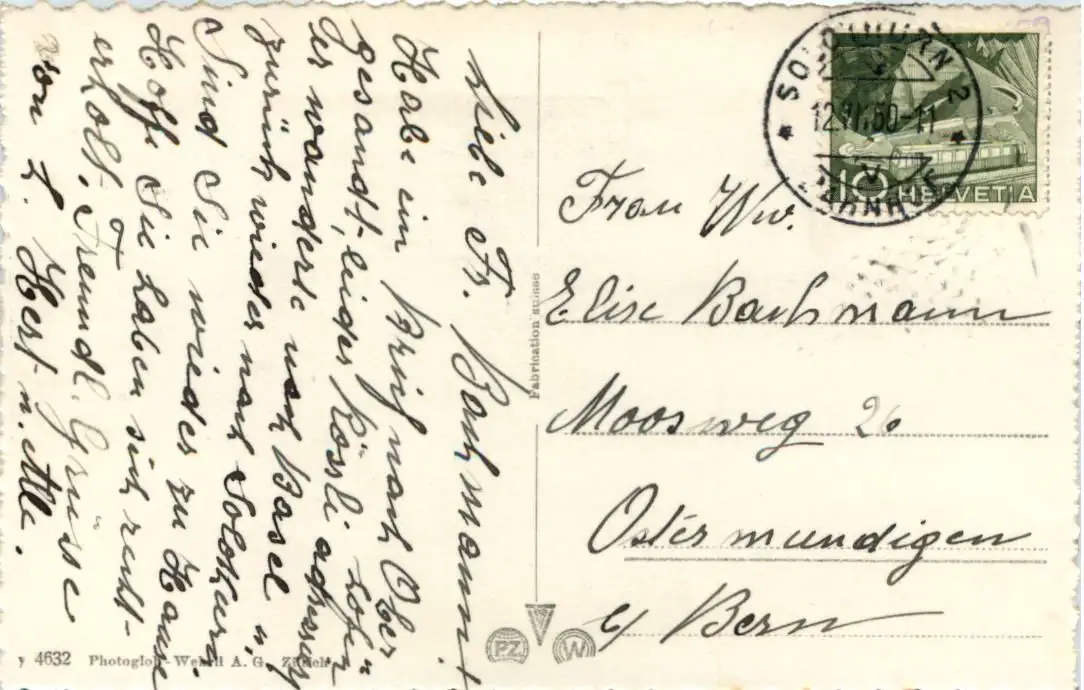 Liebe Fr. Bachmann!
Habe ein Brief nach Ober
gesandt, leider Rössli
er wanderte nach Basel u.
zurück wieder nach Solothurn.
Sind Sie wieder zu Hause
Hoffe Sie haben sich recht-
erholt, Freundl. Grüsse
von
SOLOTHURN 2
12. 50-11
10 HELVETIA
Frau Ww.
Elise Bachmann
Moosweg 26
Ostermundigen
b/ Bern
Fabrication suisse
PZ W
4632 Photoglob-Wehrli A. G., Zürich